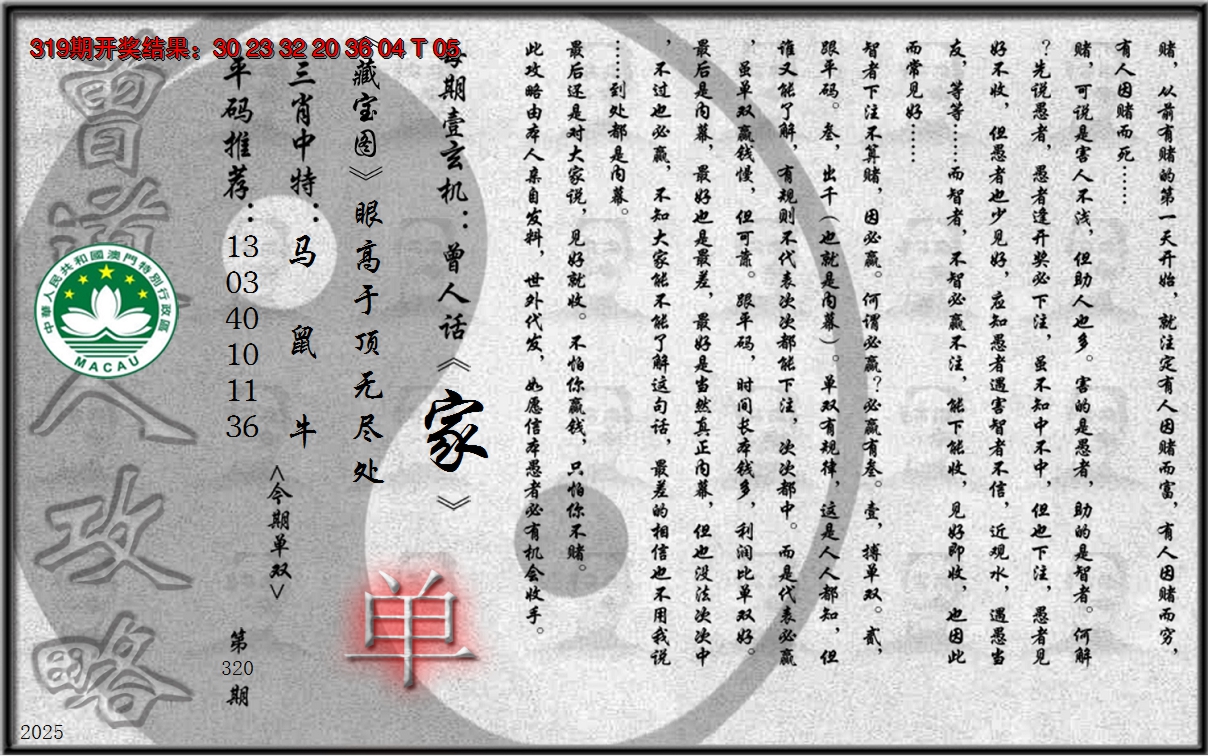 319期开奖结果：30 23 32 20 36 04 T 05
赌，从前有赌的第一天开始，就注定有人因赌而富，有人因赌而穷，
有人因赌而死……
赌，可说是害人不浅，但助人也多。害的是愚者，助的是智者。何解
？先说愚者，愚者逢开奖必下注，虽不知中不中，但也下注，愚者见
好不收，但愚者也少见好，应知愚者遇害智者不信，近观水，遇愚当
友，等等……而智者，不智必赢不注，能下能收，见好即收，也因此
而常见好……
智者下注不算赌，因必赢。何谓必赢？必赢有叁。壹，搏单双。贰，
跟平码。叁，出千（也就是内幕）。单双有规律，这是人人都知，但
谁又能了解，有规则不代表次次都能下注，次次都中。而是代表必赢
，虽单双赢钱慢，但可靠。跟平码，时间长本钱多，利润比单双好。
最后是内幕，最好也是最差，最好是当然真正内幕，但也没法次次中
，不过也必赢，不知大家能不能了解这句话，最差的相信也不用我说
……到处都是内幕。
最后还是对大家说，见好就收。不怕你赢钱，只怕你不赌。
此攻略由本人亲自发料，世外代发，如愿信本愚者必有机会收手。
每期壹玄机：曾人话《家》
《藏宝图》眼高于顶无尽处
单
三肖中特：马 鼠 牛
<今期单双>
平码推荐：13 03 40 10 11 36
第320期
曾道人攻略
中華人民共和國澳門特別行政區
MACAU
2025